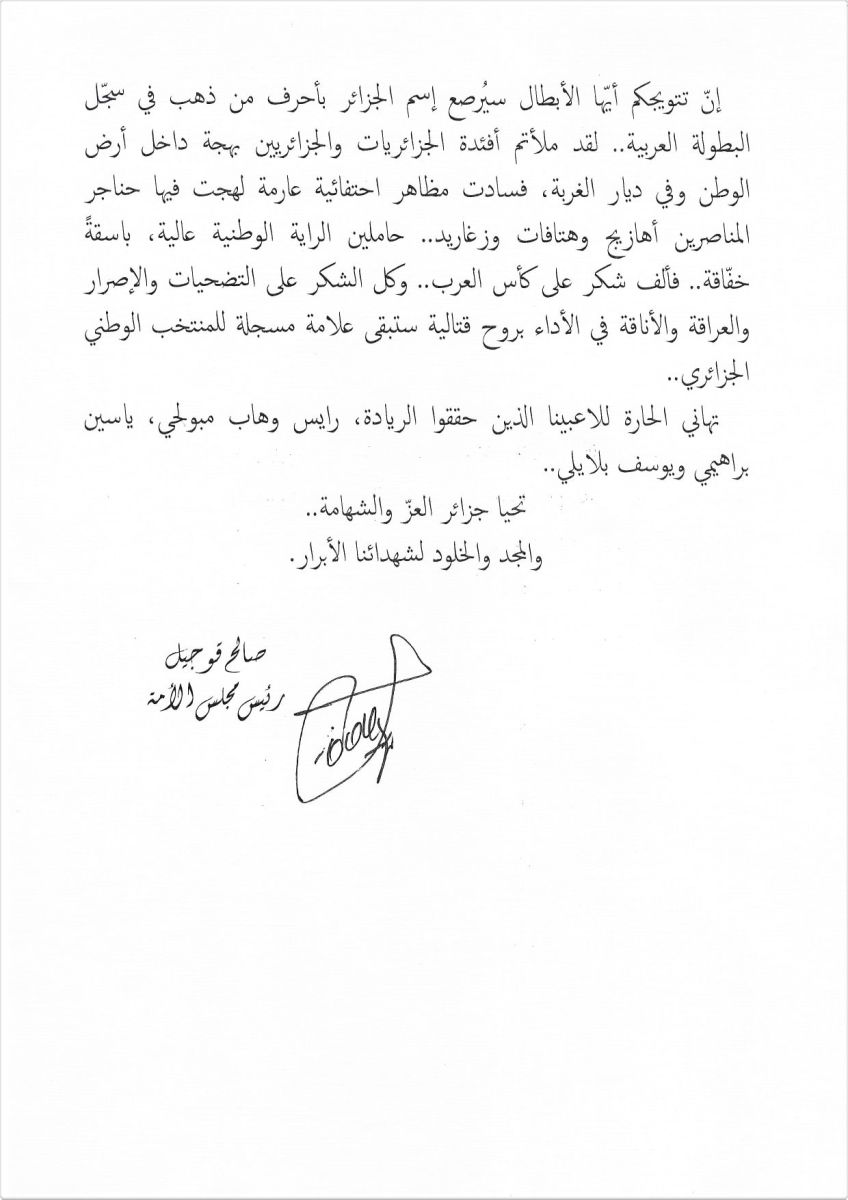 إنّ تتويجكم أيّها الأبطال سيُرصع إسم الجزائر بأحرف من ذهب في سجّل
البطولة العربية.. لقد ملأتم أفئدة الجزائريات والجزائريين بهجة داخل أرض
الوطن وفي ديار الغربة، فسادت مظاهر احتفائية عارمة لهجت فيها حناجر
المناصرين أهازيج وهتافات وزغاريد.. حاملين الراية الوطنية عالية، باسقةً
خفّاقة.. فألف شكر على كأس العرب.. وكل الشكر على التضحيات والإصرار
والعراقة والأناقة في الأداء بروح قتالية ستبقى علامة مسجلة للمنتخب الوطني
الجزائري..
تهاني الحارة للاعبينا الذين حققوا الريادة، رايس وهاب مبولحي، ياسين
براهيمي ويوسف بلايلي..
تحيا جزائر العزّ والشهامة..
والمجد والخلود لشهدائنا الأبرار.
صالح قوجيل
رئيس مجلس الأمة